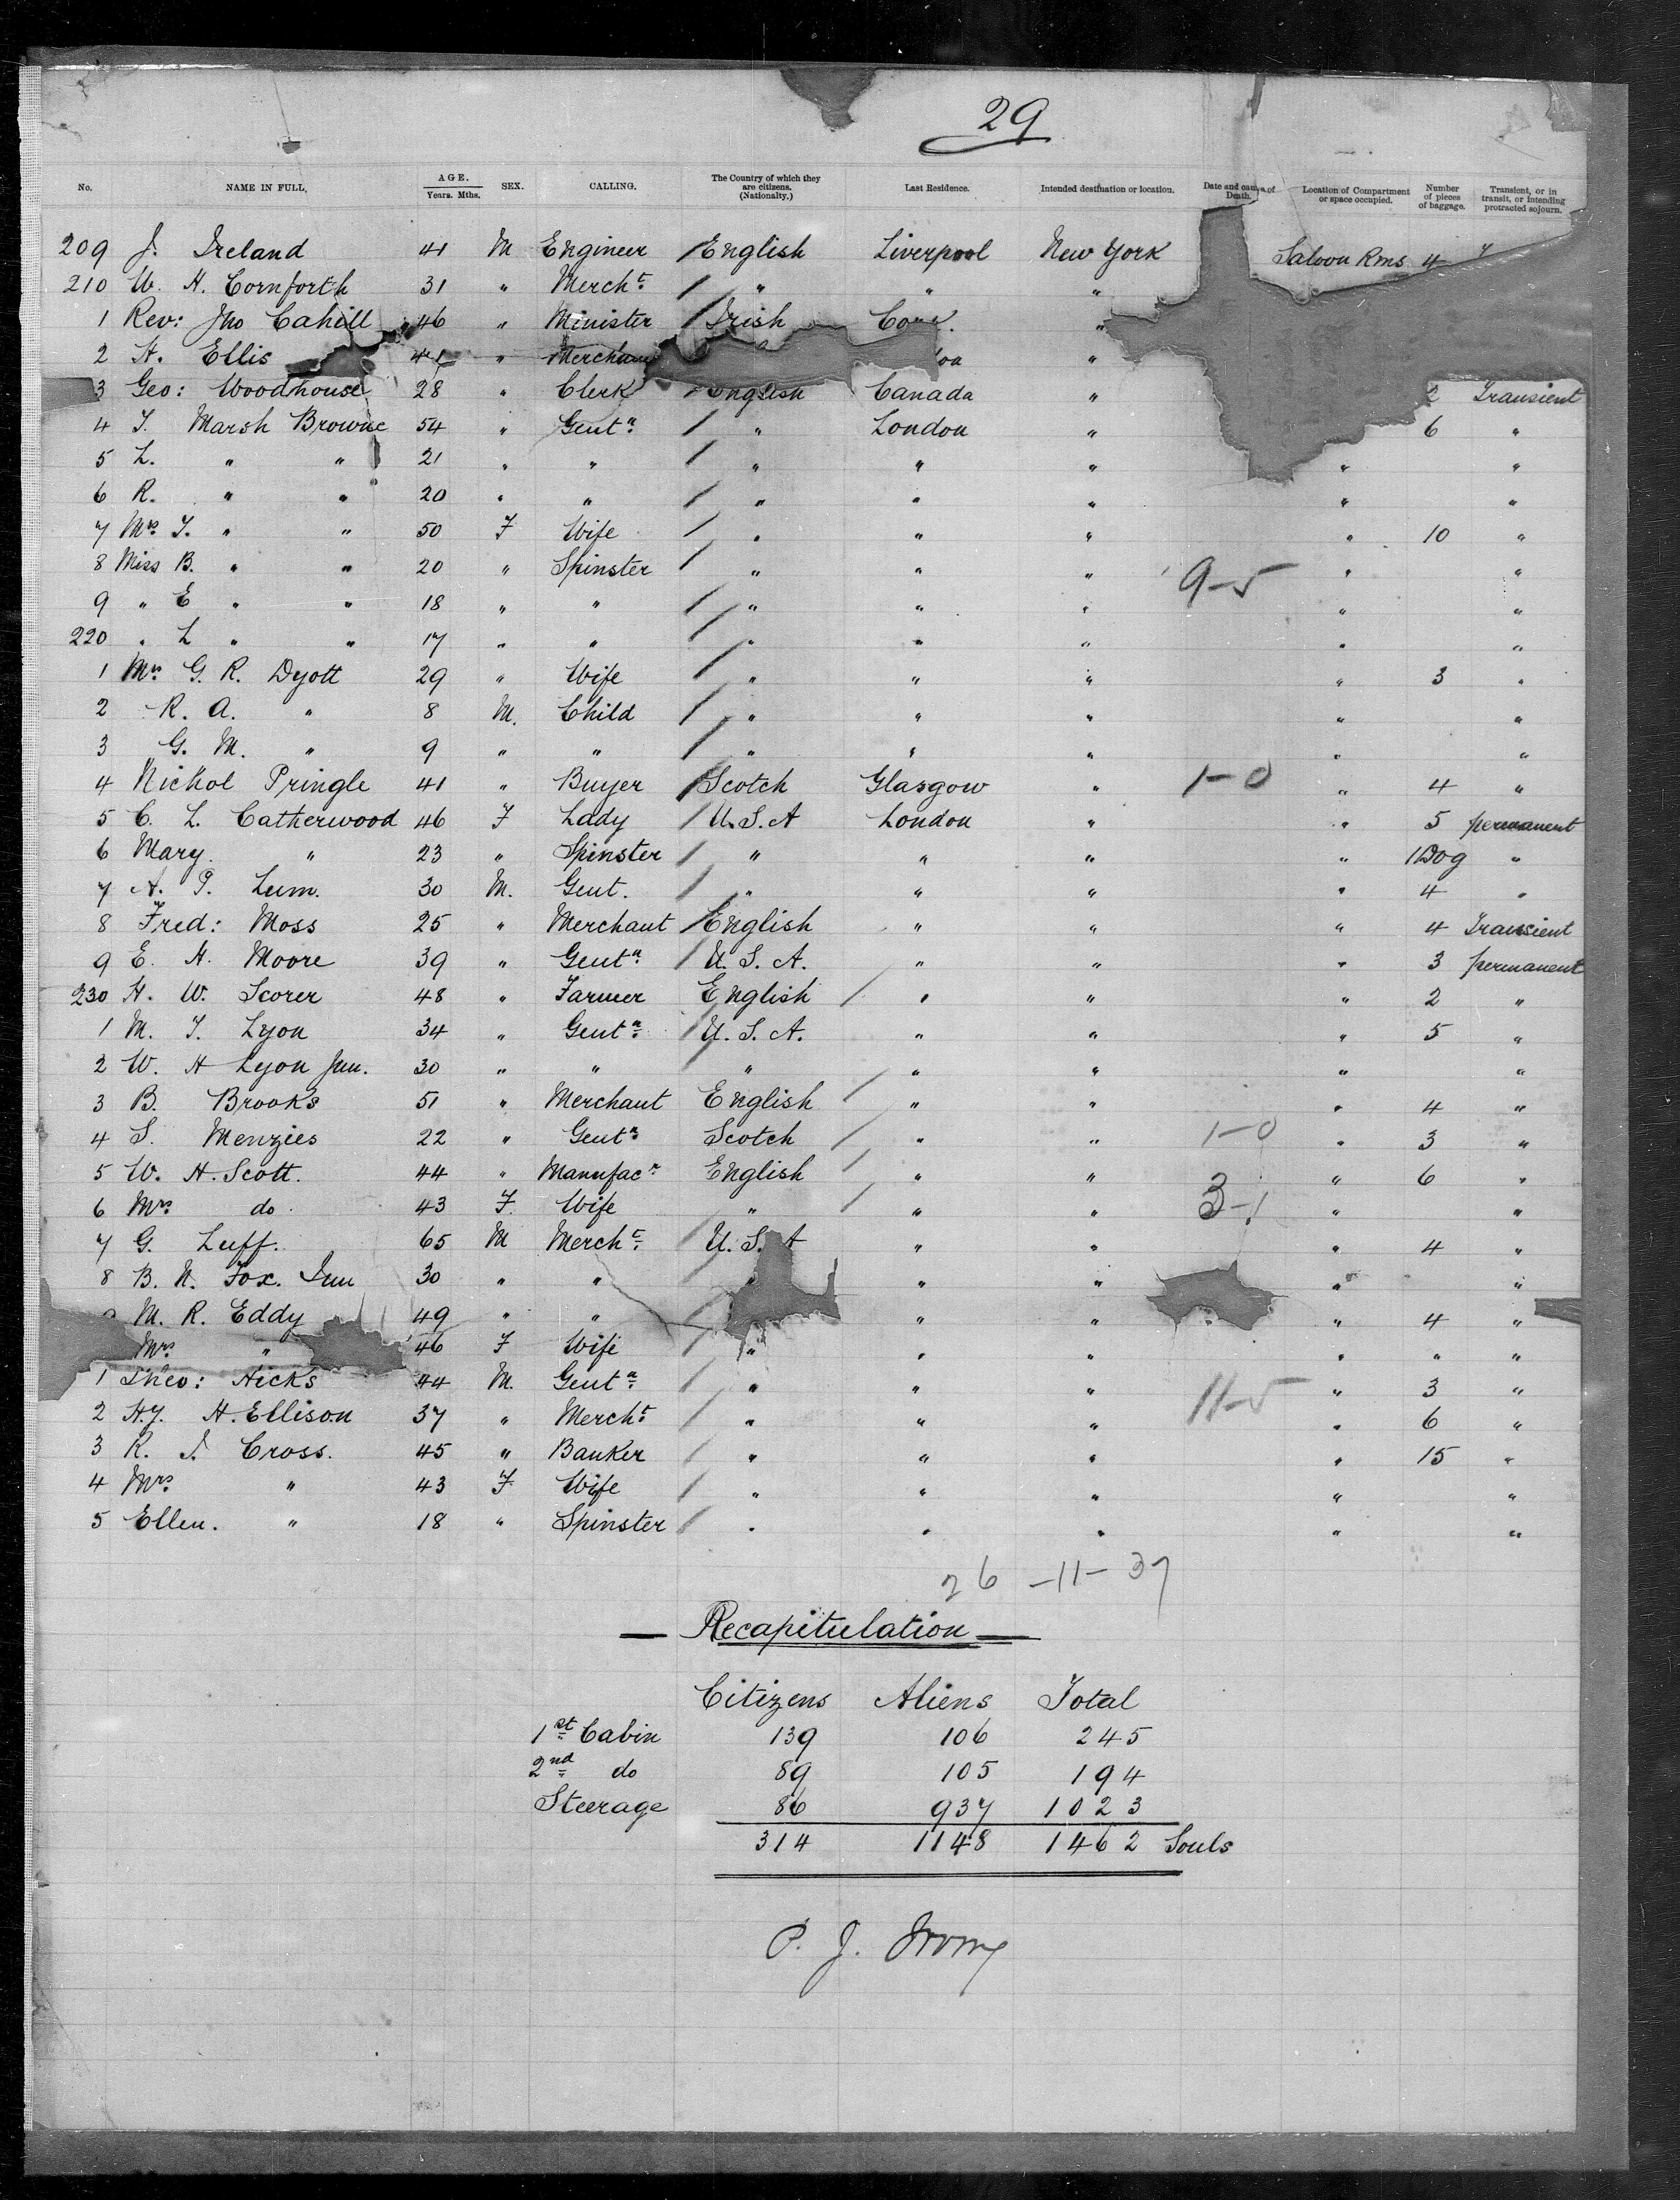 29
No. NAME IN FULL. AGE. Years. Mths. SEX. CALLING. The Country of which they are citizens. (Nationalty.) Last Residence. Intended destination or location. Date and cause of Death. Location of Compartment or space occupied. Number of pieces of baggage. Transient, or in transit, or intending protracted sojourn.
209 J. Ireland 41 M Engineer / English Liverpool New York Saloon Rms 4
210 W. H. Cornforth 31 " Mercht. / " " "
1 Rev: Jno Cahill 46 " Minister / Irish "
2 H. Ellis 41 " "
3 Geo: Woodhouse 28 " Clerk / English Canada " 2 Transient
4 T. Marsh Browne 54 " Gentn / " London " 6 "
5 L. " " 21 " " / " " " " "
6 R. " " 20 " " / " " " " "
7 Mrs T. " " 50 F Wife / " " " " 10 "
8 Miss B. " " 20 " Spinster / " " " 9-5 " "
9 " E " " 18 " " / " " " " "
220 " L " " 17 " " / " " " " "
1 Mrs G. R. Dyott 29 " Wife / " " " " 3 "
2 R. A. " 8 M. Child / " " " " "
3 G. M. " 9 " " / " " " " "
4 Nichol Pringle 41 " Buyer / Scotch Glasgow " 1-0 " 4 "
5 C. L. Catherwood 46 F Lady / U.S.A London " " 5 permanent
6 Mary. " 23 " Spinster / " " " " 1 Dog "
7 A. P. Lum. 30 M. Gent. / " " " " 4 "
8 Fred: Moss 25 " Merchant / English " " " 4 Transient
9 E. H. Moore 39 " Gentn / U. S. A. " " " 3 permanent
230 H. W. Scorer 48 " Farmer English / " " " 2 "
1 M. T. Lyon 34 " Gentn / U. S. A. " " " 5 "
2 W. H Lyon Jun. 30 " " / " " " " "
3 B. Brooks 51 " Merchant English / " " " 4 "
4 S. Menzies 22 " Gentn Scotch / " " 1-0 " 3 "
5 W. H. Scott. 44 " Manufacr English / " " " 6 "
6 Mrs do 43 F. Wife " / " " 3-1 " "
7 G. Luff. 65 M Mercht. / U. S. A " " " 4 "
8 B. N. Fox. Jun 30 " " / " " " " "
M. R. Eddy 49 " " / " " " 4 "
Mrs " 46 F Wife / " " " " " "
1 Theo: Hicks 44 M. Gentn / " " " 11-5 " 3 "
2 H.J. H. Ellison 37 " Mercht. / " " " " 6 "
3 R. J. Cross. 45 " Banker / " " " " 15 "
4 Mrs " 43 F Wife / " " " " "
5 Ellen. " 18 " Spinster / " " " " "
26 -11- 37
Recapitulation
Citizens Aliens Total
1st Cabin 139 106 245
2nd do 89 105 194
Steerage 86 937 1023
314 1148 1462 Souls
P. J.